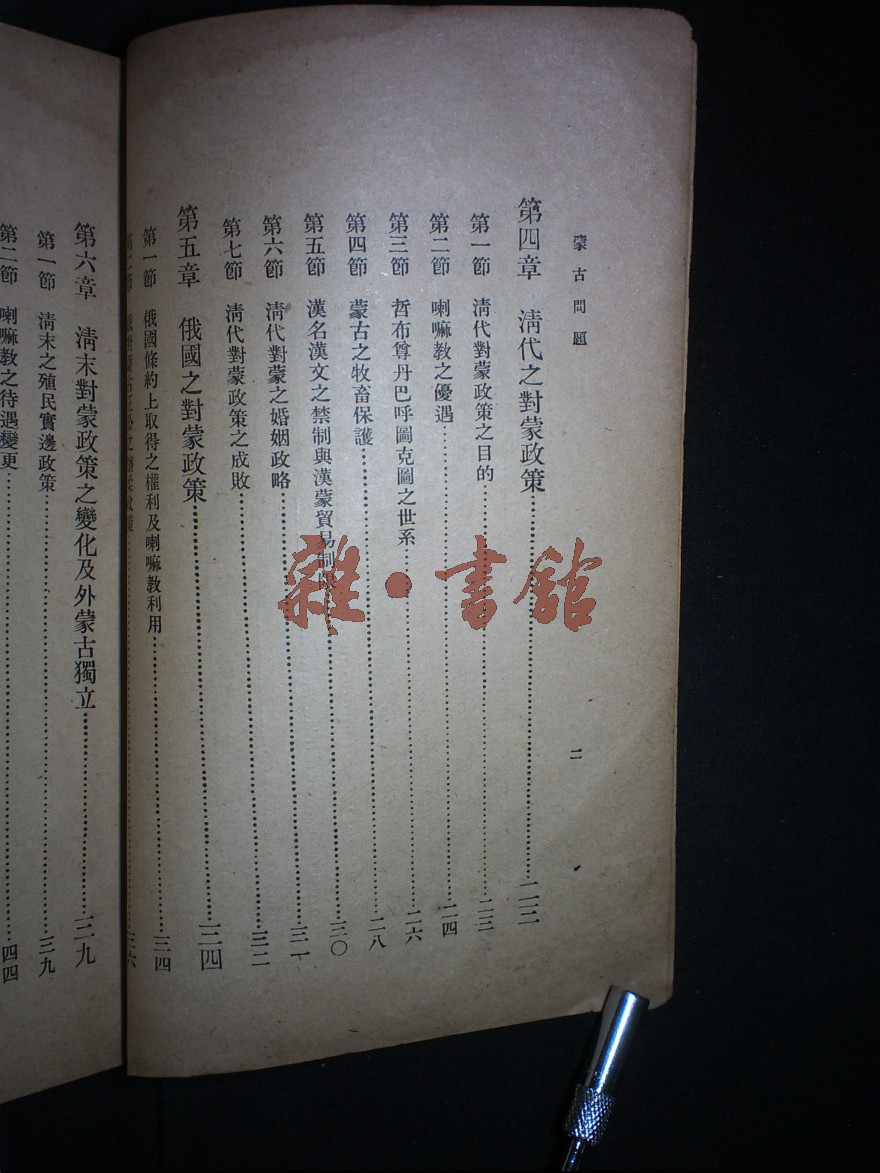 蒙古問題
二
第四章 清代之對蒙政策……二三
第一節 清代對蒙政策之目的……二三
第二節 喇嘛教之優遇……二四
第三節 哲布尊丹巴呼圖克圖之世系……二六
第四節 蒙古之牧畜保護……二八
第五節 漢名漢文之禁制與漢蒙貿易制限……三〇
第六節 清代對蒙之婚姻政略……三一
第七節 清代對蒙政策之成敗……三二
第五章 俄國之對蒙政策……三四
第一節 俄國條約上取得之權利及喇嘛教利用……三四
第二節 蒙古王公之……三六
第六章 清末對蒙政策之變化及外蒙古獨立……三九
第一節 清末之殖民實邊政策……三九
第二節 喇嘛教之待遇變更……四四
雜·書館